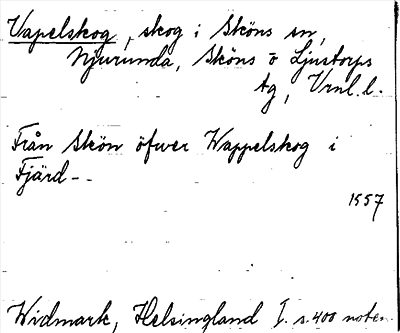 Vapelskog, skog i Sköns sn,
Njurunda, Sköns o Ljustorps
tg, Vrnl. l.
Från Skön öfwer Wappelskog i
Fjärd--
1557
Widmark, Helsingland I. s. 400 noten.